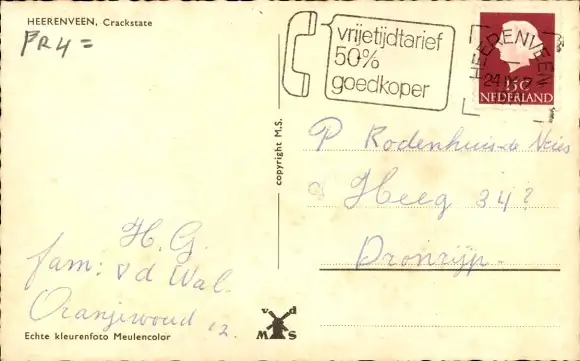 HEERENVEEN, Crackstate
PR4=
vrijetijdtarief
50%
goedkoper
HEERENVEEN
24
15c
NEDERLAND
copyright M.S.
P Rodenhuis-de Vries
Heeg 34?
Dronrijp.
H.G.
fam: v d Wal.
Oranjewoud 12.
v d
M S
Echte kleurenfoto Meulencolor